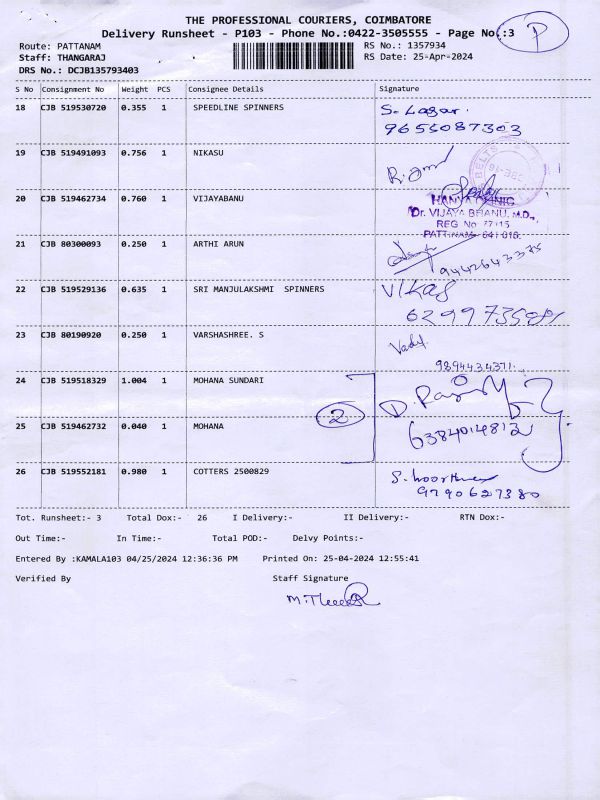 THE PROFESSIONAL COURIERS, COIMBATORE
Delivery Runsheet - P103 - Phone No.:0422-3505555 - Page No.:3
P
Route: PATTANAM
RS No.: 1357934
Staff: THANGARAJ
RS Date: 25-Apr-2024
DRS No.: DCJB135793403
S No Consignment No Weight PCS Consignee Details Signature
18 CJB 519530720 0.355 1 SPEEDLINE SPINNERS
9655087303
19 CJB 519491093 0.756 1 NIKASU
BELTS
20 CJB 519462734 0.760 1 VIJAYABANU
HANYA CLINIC
Dr. VIJAYA BHANU, M.D.,
REG No 77115
PATTINAM 641 016.
21 CJB 80300093 0.250 1 ARTHI ARUN
9442643375
22 CJB 519529136 0.635 1 SRI MANJULAKSHMI SPINNERS Vikas
23 CJB 80190920 0.250 1 VARSHASHREE. S
9894434371
24 CJB 519518329 1.004 1 MOHANA SUNDARI
25 CJB 519462732 0.040 1 MOHANA 2 6384014812
26 CJB 519552181 0.980 1 COTTERS 2500829
9790627380
Tot. Runsheet:- 3 Total Dox:- 26 I Delivery:- II Delivery:- RTN Dox:-
Out Time:- In Time:- Total POD:- Delvy Points:-
Entered By :KAMALA103 04/25/2024 12:36:36 PM Printed On: 25-04-2024 12:55:41
Verified By Staff Signature